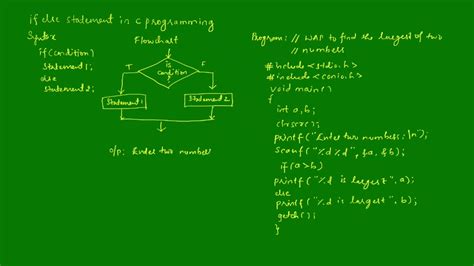 if else statement in C programming
Syntax
if(condition)
Statement1;
else
Statement2;
Flowchart
T
is
condition
?
F
Statement1
Statement2
O/P: Enter two numbers
Program: // WAP to find the largest of two
// numbers
#include<stdio.h>
#include<conio.h>
void main()
{
int a,b;
clrscr();
printf("Enter two numbers:\n");
Scanf("%d%d", &a, &b);
if(a>b)
printf("%d is largest", a);
else
printf("%d is largest", b);
getch();
}